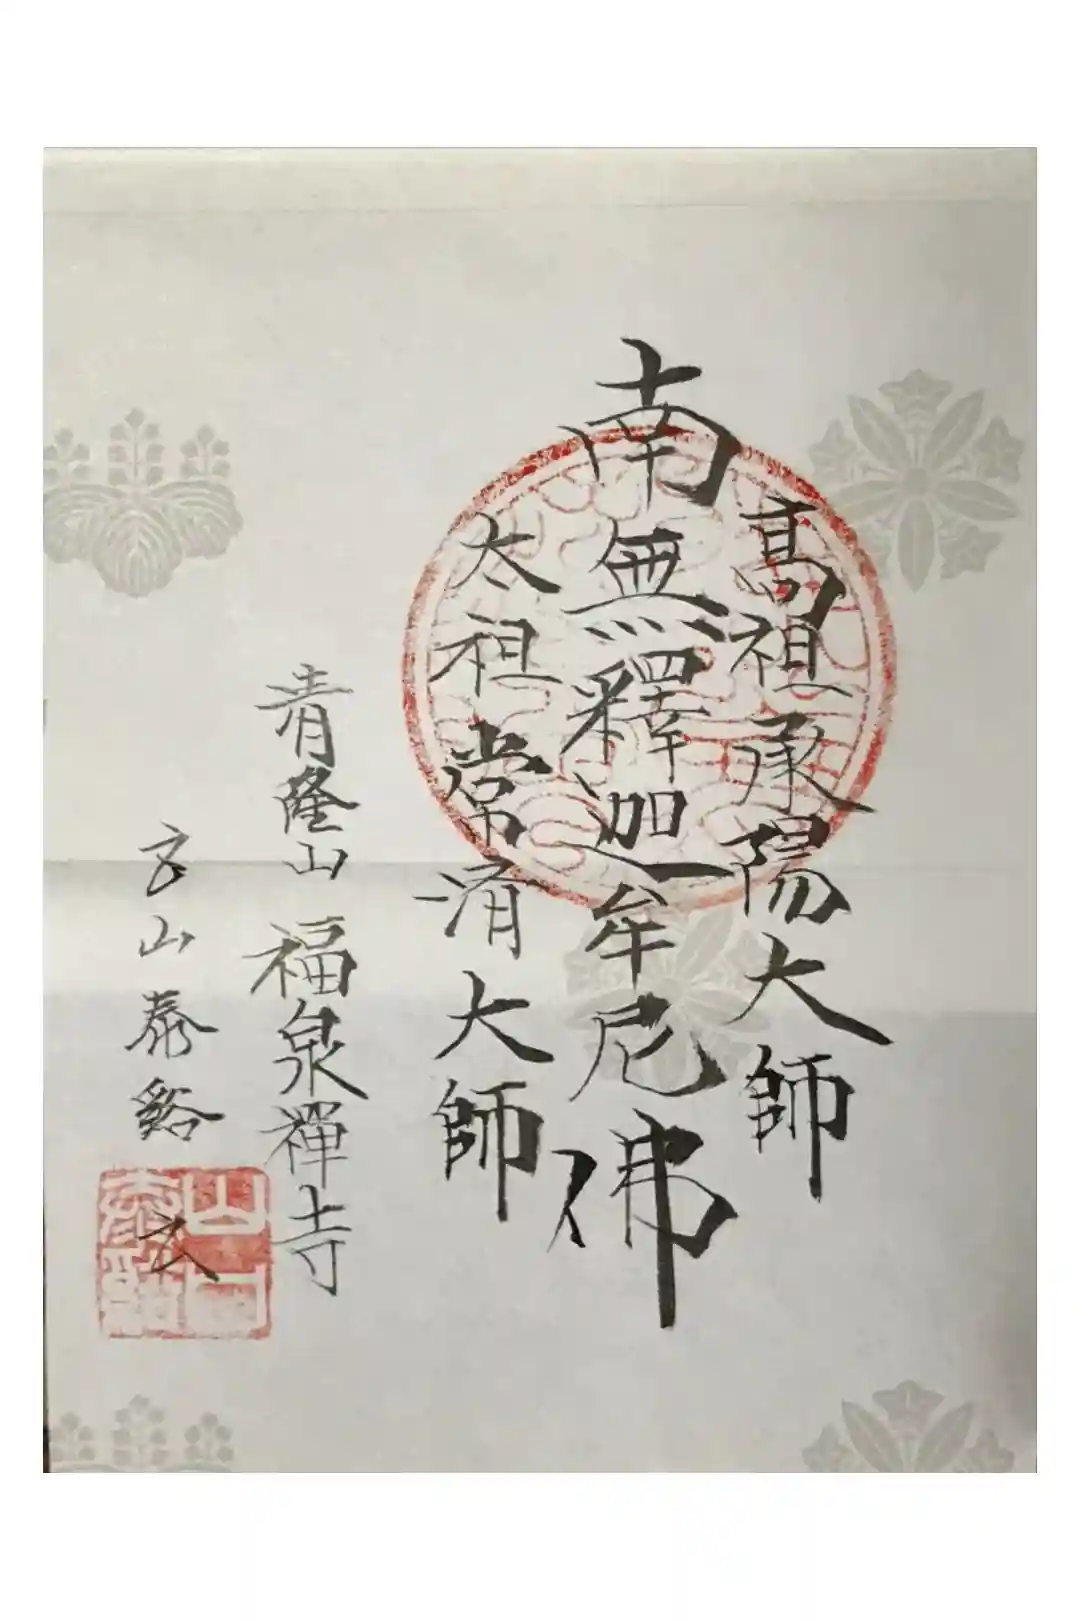 高祖承陽大師
南無釋迦牟尼佛
太祖常済大師
青隆山 福泉禅寺
山泰谿